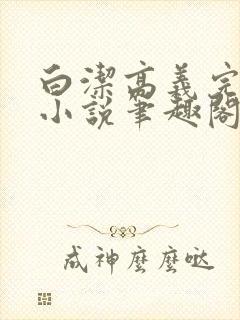 白潔高義完
小說筆趣閣
成神麼麼噠